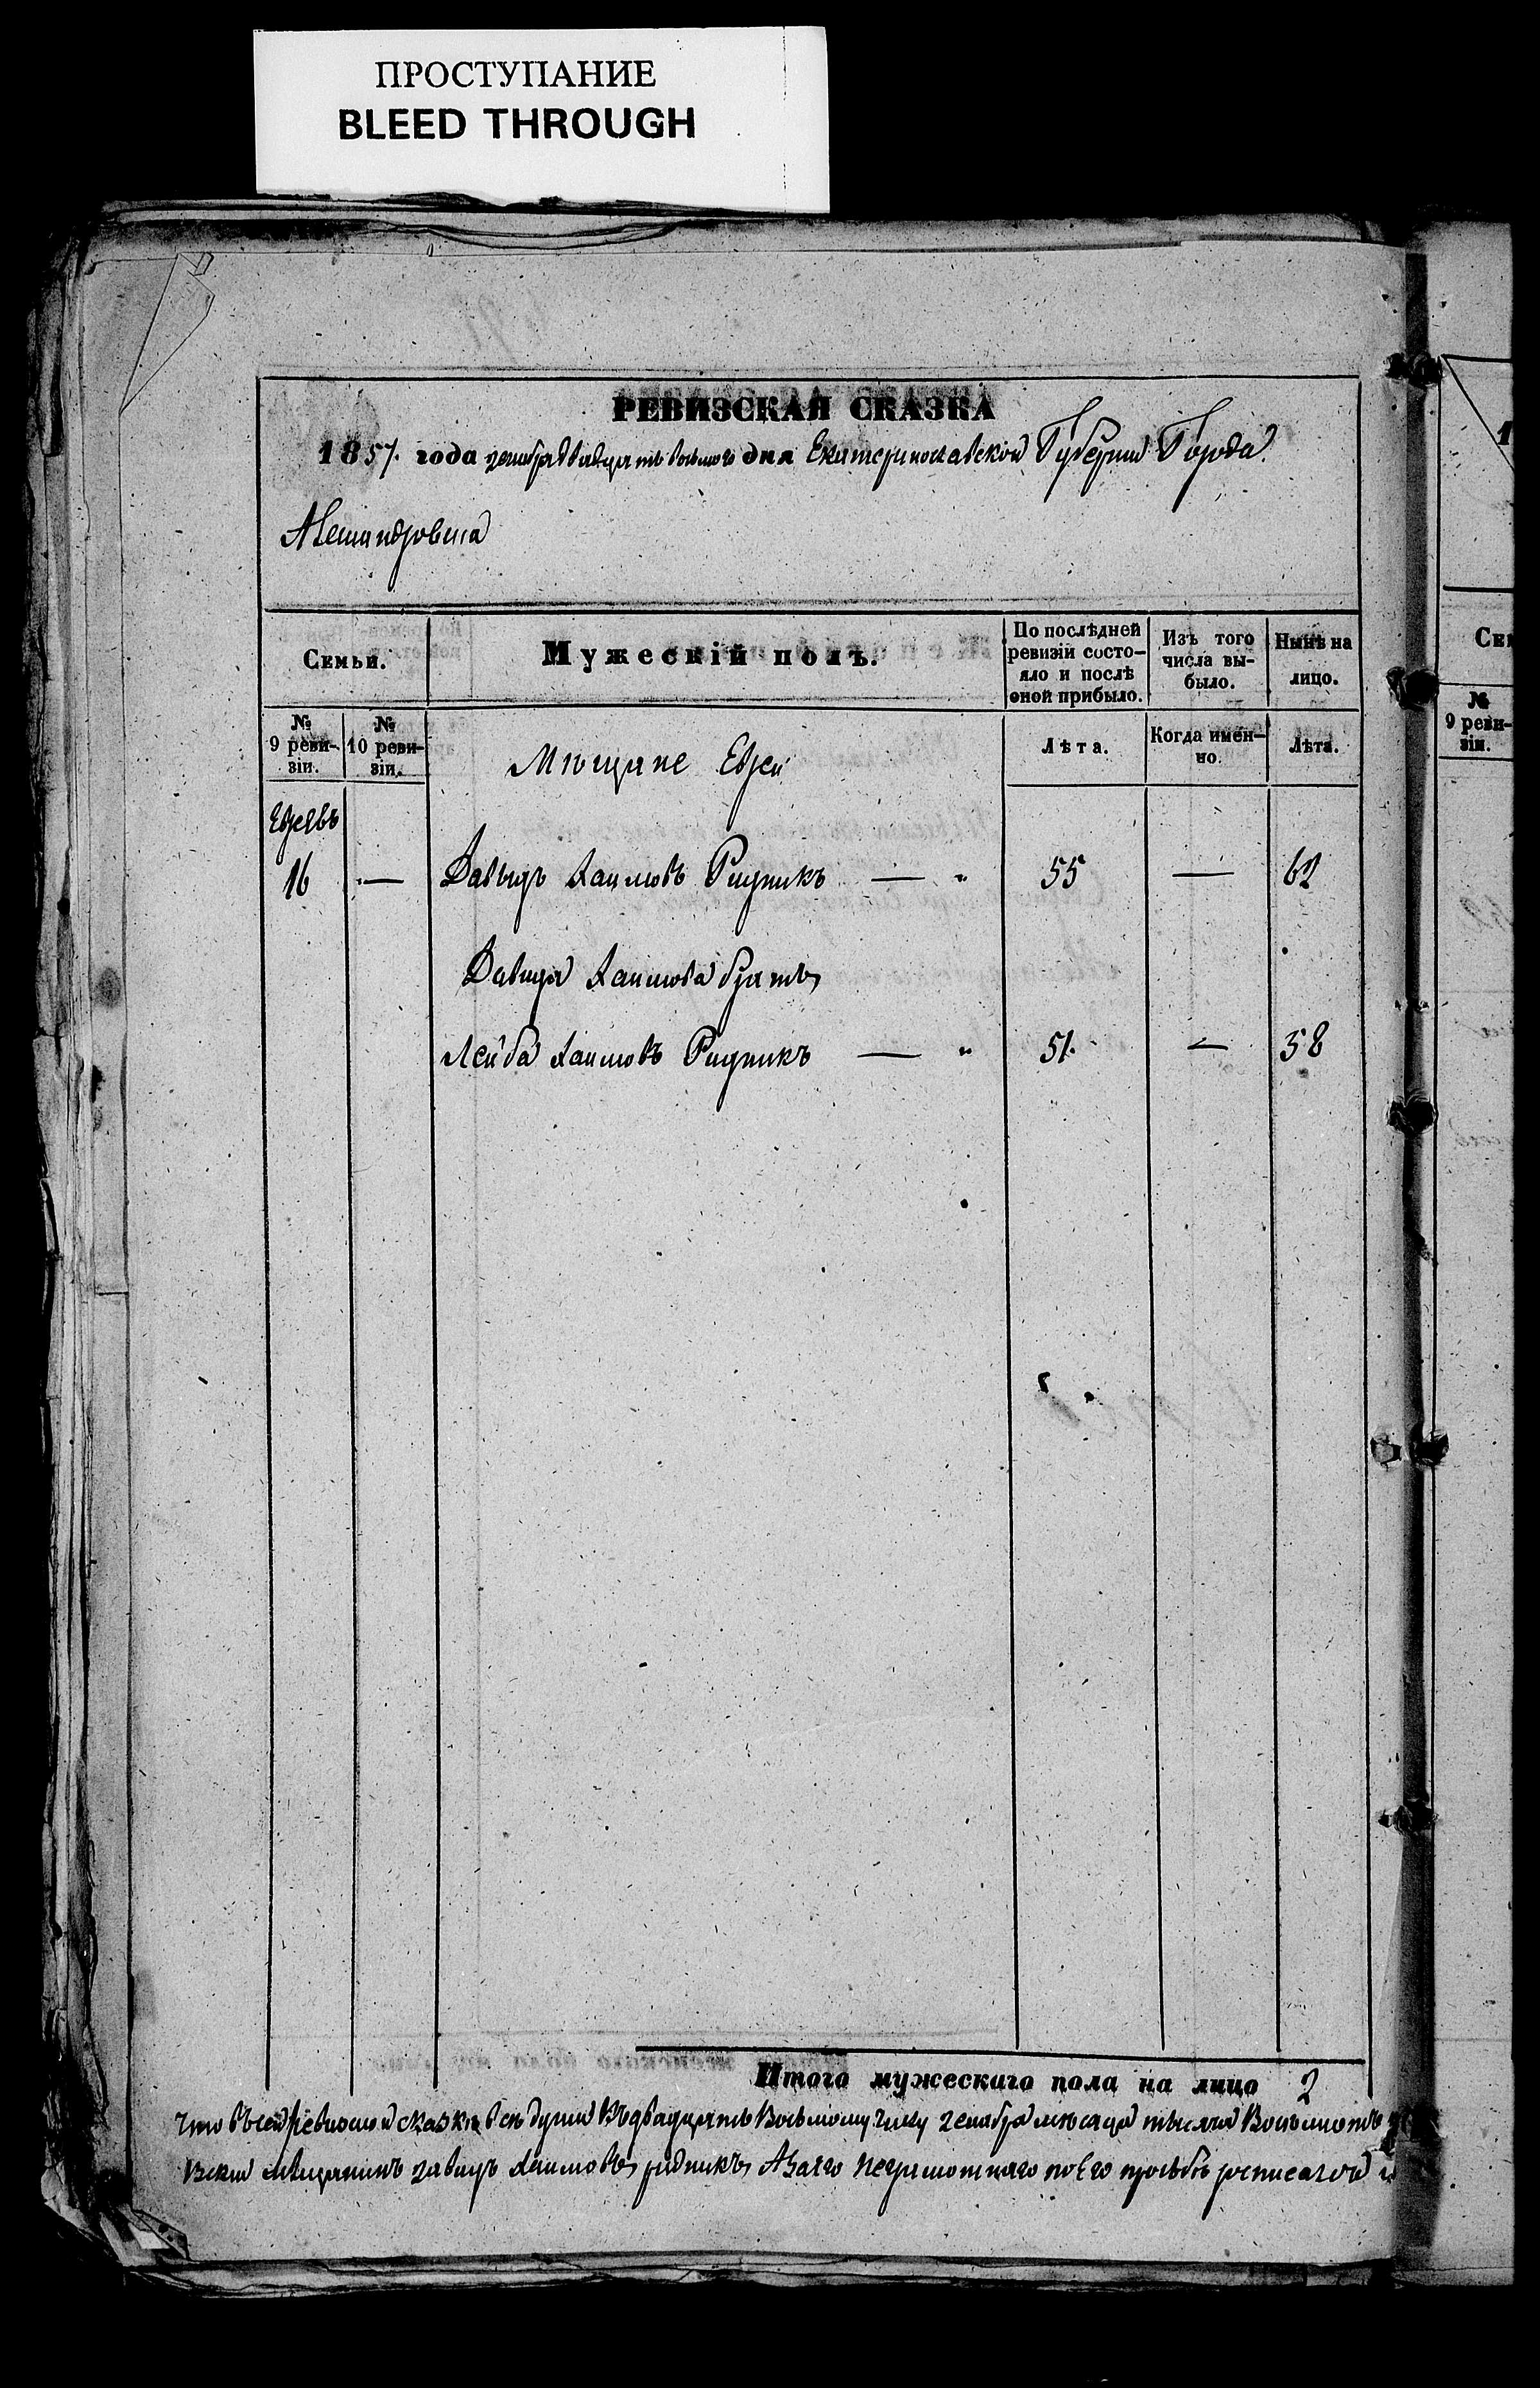 ПРОСТУПАНИЕ
BLEED THROUGH
РЕВИЗСКАЯ СКАЗКА
1857. года декабря двадцать восьмого дня Екатеринославской Губерніи Города
Александровска
Семьи.
Мужескій полъ.
По послѣдней ревизіи состо-
яло и послѣ
оной прибыло.
Изъ того
числа вы-
было.
Нынѣ на
лицо.
№
9 реви-
зіи.
№
10 реви-
зіи.
Мѣщане Евреи
Лѣта.
Когда имен-
но.
Лѣта.
Евреевъ
16 — Давыдъ Хаимовъ Ридникъ — " 55 — 62
Давида Хаимова братъ
Лейба Хаимовъ Ридникъ — " 51. — 58
Итого мужескаго пола на лицо 2
Что въ сей ревизской сказке все души къ двадцать восьмому числу декабря мѣсяца тысяча восемьсотъ
вский мѣщанинъ давидъ хаимовъ ридникъ А за его неграмотнаго по его прозьбѣ росписался
1
Сем
№
9 реви-
зіи.